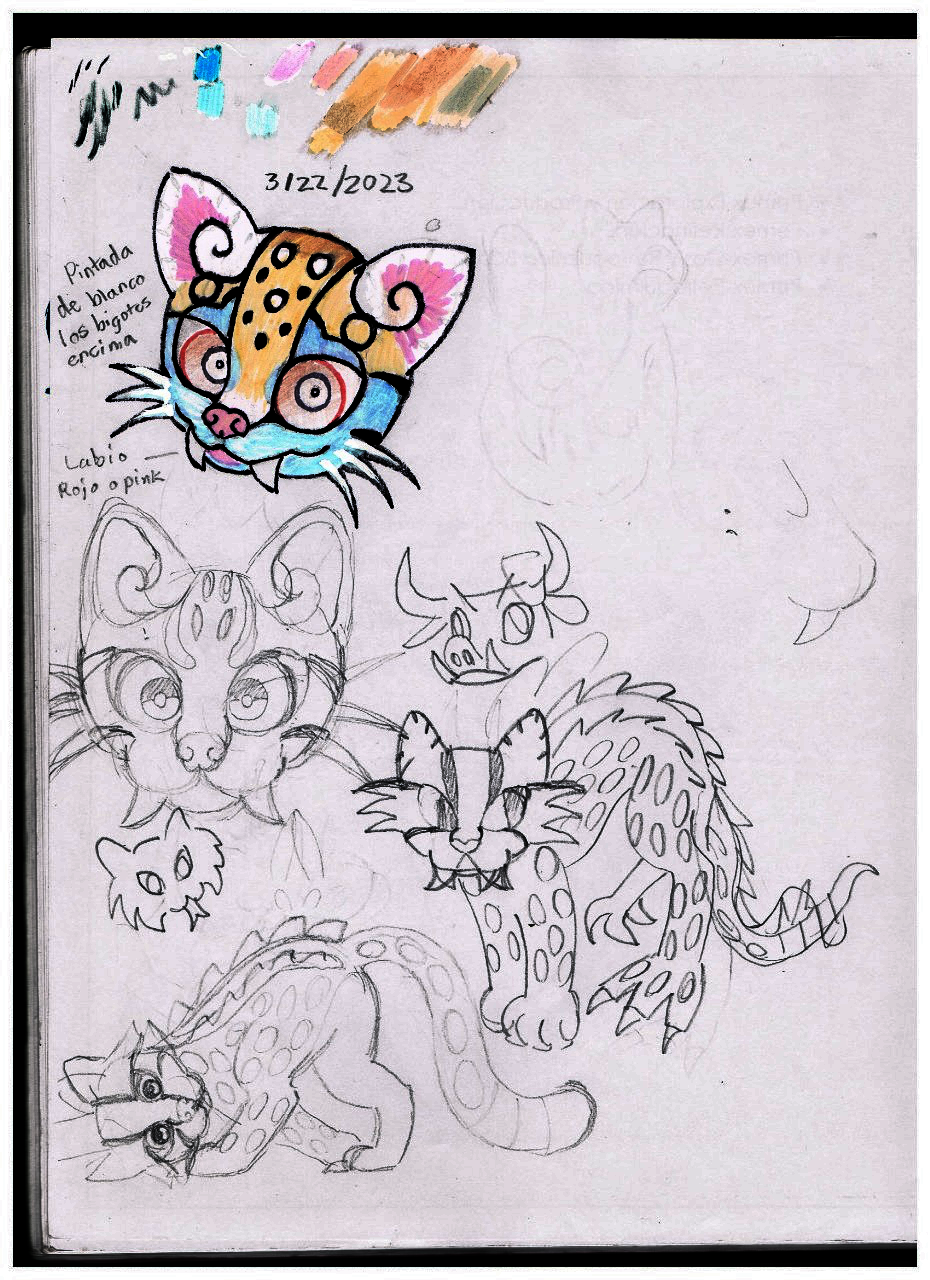 3/22/2023
Pintada
de blanco
los bigotes
encima
Labio
Rojo o pink